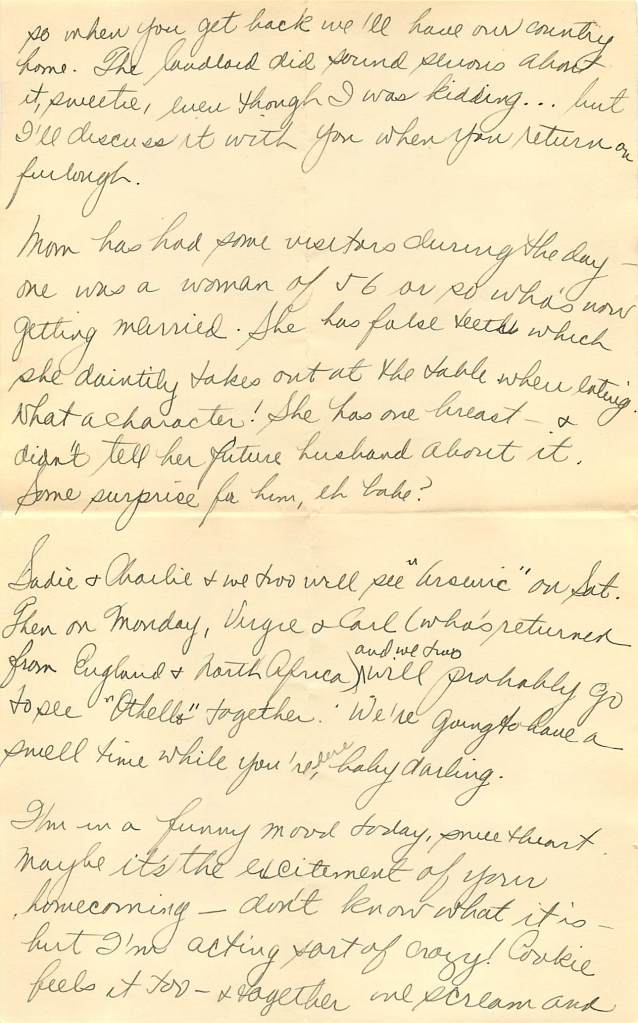 so when you get back we'll have our country
home. The landlord did sound serious about
it, sweetie, even though I was kidding... but
I'll discuss it with you when you return on
furlough.
Mom has had some visitors during the day —
one was a woman of 56 or so who's now
getting married. She has false teeth which
she daintily takes out at the table when eating.
What a character! She has one breast — &
didn't tell her future husband about it.
Some surprise for him, eh babe?
Sadie & Charlie & we two will see "Arsenic" on Sat.
Then on Monday, Virgie & Carl (who's returned
from England & North Africa) and we two will probably go
to see "Othello" together. We're going to have a
swell time while you're here, baby darling.
I'm in a funny mood today, sweetheart.
Maybe it's the excitement of your
homecoming — don't know what it is —
but I'm acting sort of crazy! Cookie
feels it too — & together we scream and